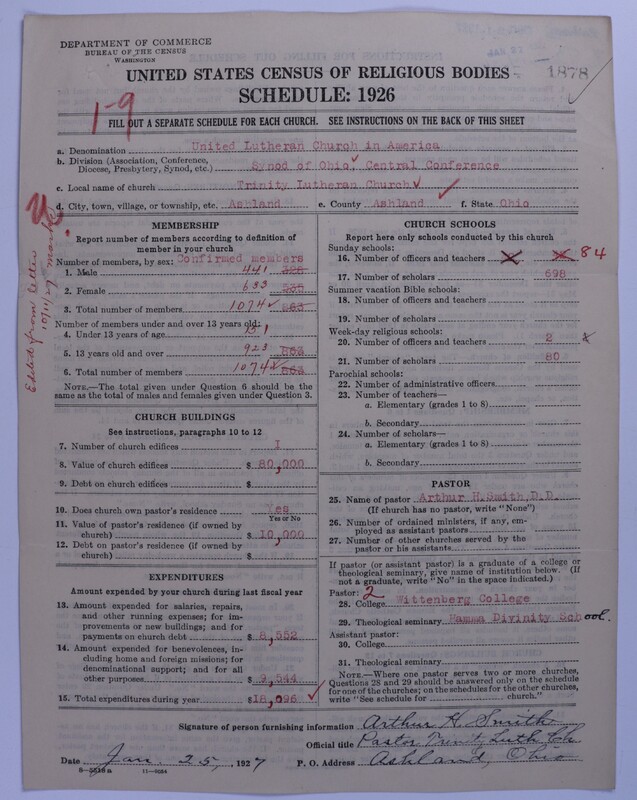 DEPARTMENT OF COMMERCE
BUREAU OF THE CENSUS
WASHINGTON
UNITED STATES CENSUS OF RELIGIOUS BODIES
1878
SCHEDULE: 1926
1-9
FILL OUT A SEPARATE SCHEDULE FOR EACH CHURCH. SEE INSTRUCTIONS ON THE BACK OF THIS SHEET
a. Denomination United Lutheran Church in America
b. Division (Association, Conference, Diocese, Presbytery, Synod, etc.) Synod of Ohio, Central Conference
c. Local name of church Trinity Lutheran Church
d. City, town, village, or township, etc. Ashland e. County Ashland f. State Ohio
Edited from letter 10/11/27
MEMBERSHIP
Report number of members according to definition of
member in your church
Number of members, by sex: Confirmed members
1. Male 441
2. Female 633
3. Total number of members 1074 863
Number of members under and over 13 years old:
4. Under 13 years of age 151
5. 13 years old and over 923 863
6. Total number of members 1074 863
NOTE.—The total given under Question 6 should be
same as the total of males and females given under Question 3.
CHURCH BUILDINGS
See instructions, paragraphs 10 to 12
7. Number of church edifices 1
8. Value of church edifices $ 80,000
9. Debt on church edifices $
10. Does church own pastor's residence Yes
Yes or No
11. Value of pastor's residence (if owned by
church) $ 10,000
12. Debt on pastor's residence (if owned by
church) $
EXPENDITURES
Amount expended by your church during last fiscal year
13. Amount expended for salaries, repairs,
and other running expenses; for im-
provements or new buildings; and for
payments on church debt $ 8,552
14. Amount expended for benevolences, in-
cluding home and foreign missions; for
denominational support; and for all
other purposes $ 9,544
15. Total expenditures during year $18,096
CHURCH SCHOOLS
Report here only schools conducted by this church
Sunday schools:
16. Number of officers and teachers 84
17. Number of scholars 698
Summer vacation Bible schools:
18. Number of officers and teachers
19. Number of scholars
Week-day religious schools:
20. Number of officers and teachers 2
21. Number of scholars 80
Parochial schools:
22. Number of administrative officers
23. Number of teachers—
a. Elementary (grades 1 to 8)
b. Secondary
24. Number of scholars—
a. Elementary (grades 1 to 8)
b. Secondary
PASTOR
25. Name of pastor Arthur H. Smith, D.D.
(If church has no pastor, write "None")
26. Number of ordained ministers, if any, em-
ployed as assistant pastors
27. Number of other churches served by the
pastor or his assistants
If pastor (or assistant pastor) is a graduate of a college or
theological seminary, give name of institution below. (If
not a graduate, write "No" in the space indicated.)
Pastor: 2
28. College Wittenberg College
29. Theological seminary Hamma Divinity School.
Assistant pastor:
30. College
31. Theological seminary
NOTE.—Where one pastor serves two or more churches,
Questions 28 and 29 should be answered only on the schedule
for one of the churches; on the schedules for the other churches,
write "See schedule for church."
Signature of person furnishing information Arthur H. Smith
Official title Pastor Trinity Luth Ch
Date Jan. 25, 1927 P. O. Address Ashland, Ohio
11-9084